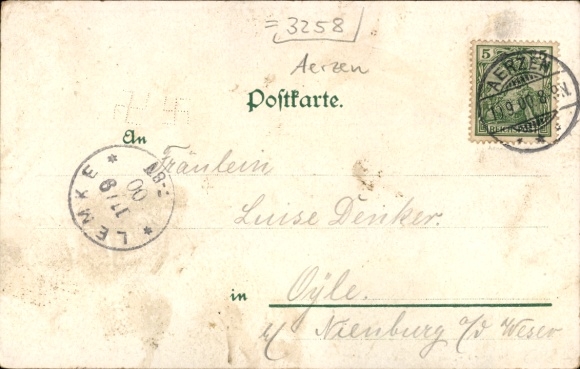 = 3258
Aerzen
Postkarte.
5
REICHSPOST
AERZEN
10.9.00.8-9N.
An Fräulein
LEMKE
11/9
00
7-8N
Luise Denker.
in Oyle.
b/ Nienburg a/d Weser